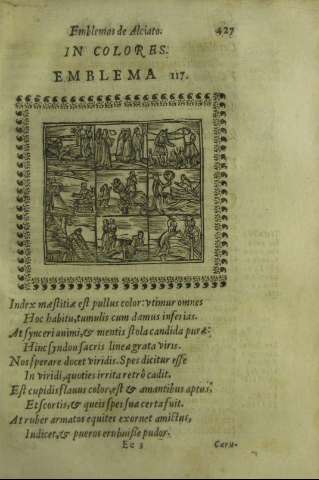 Emblemas de Alciato. 427
IN COLORES.
EMBLEMA 117.
Index mæstitiæ est pullus color: vtimur omnes
Hoc habitu, tumulis cum damus inferias.
At synceri animi, & mentis stola candida puræ:
Hinc syndon sacris linea grata viris.
Nos sperare docet viridis. Spes dicitur esse
In viridi, quoties irrita retrò cadit.
Est cupidis flauus color, est & amantibus aptus,
Et scortis, & queis spes sua certa fuit.
At ruber armatos equites exornet amictus,
Iudicet, & pueros erubuisse pudor.
Ee 3 Cæru-